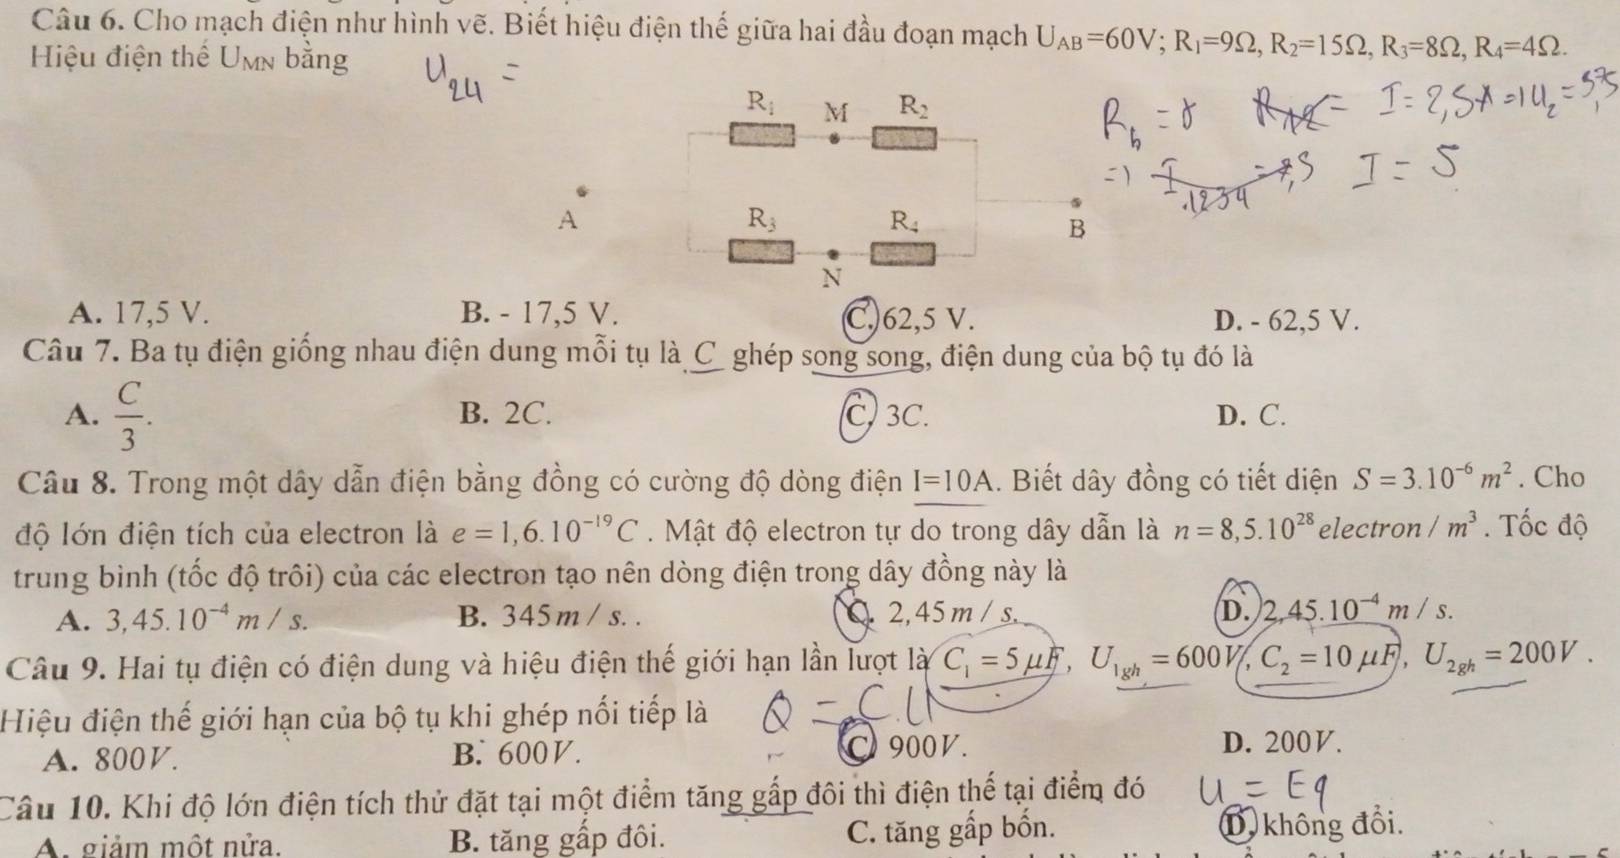 Câu 6. Cho mạch điện như hình vẽ. Biết hiệu điện thế giữa hai đầu đoạn mạch U_AB=60V; R₁=9Ω, R₂=15Ω, R₃=8Ω, R₄=4Ω.
Hiệu điện thế U_MN bằng
U₂₄ =
R₁ M R₂
R_b = 8 I = 2,5A => U₂ =
=> I₁₂₃₄ = 7,5 I = 5
A R₃ R₄ B
N
A. 17,5 V. B. - 17,5 V. C. 62,5 V. D. - 62,5 V.
Câu 7. Ba tụ điện giống nhau điện dung mỗi tụ là C ghép song song, điện dung của bộ tụ đó là
A. C/3. B. 2C. C. 3C. D. C.
Câu 8. Trong một dây dẫn điện bằng đồng có cường độ dòng điện I=10A. Biết dây đồng có tiết diện S = 3.10⁻⁶ m². Cho
độ lớn điện tích của electron là e = 1,6.10⁻¹⁹ C. Mật độ electron tự do trong dây dẫn là n = 8,5.10²⁸ electron / m³. Tốc độ
trung bình (tốc độ trôi) của các electron tạo nên dòng điện trong dây đồng này là
A. 3,45.10⁻⁴ m / s. B. 345 m / s. . C. 2,45 m / s. D. 2,45.10⁻⁴ m / s.
Câu 9. Hai tụ điện có điện dung và hiệu điện thế giới hạn lần lượt là C₁ = 5 μF, U₁gh = 600V, C₂ = 10 μF, U₂gh = 200V.
Hiệu điện thế giới hạn của bộ tụ khi ghép nối tiếp là
Q = C.U
A. 800V. B. 600V. C. 900V. D. 200V.
Câu 10. Khi độ lớn điện tích thử đặt tại một điểm tăng gấp đôi thì điện thế tại điểm đó
U = Eq
A. giảm một nửa. B. tăng gấp đôi. C. tăng gấp bốn. D. không đổi.